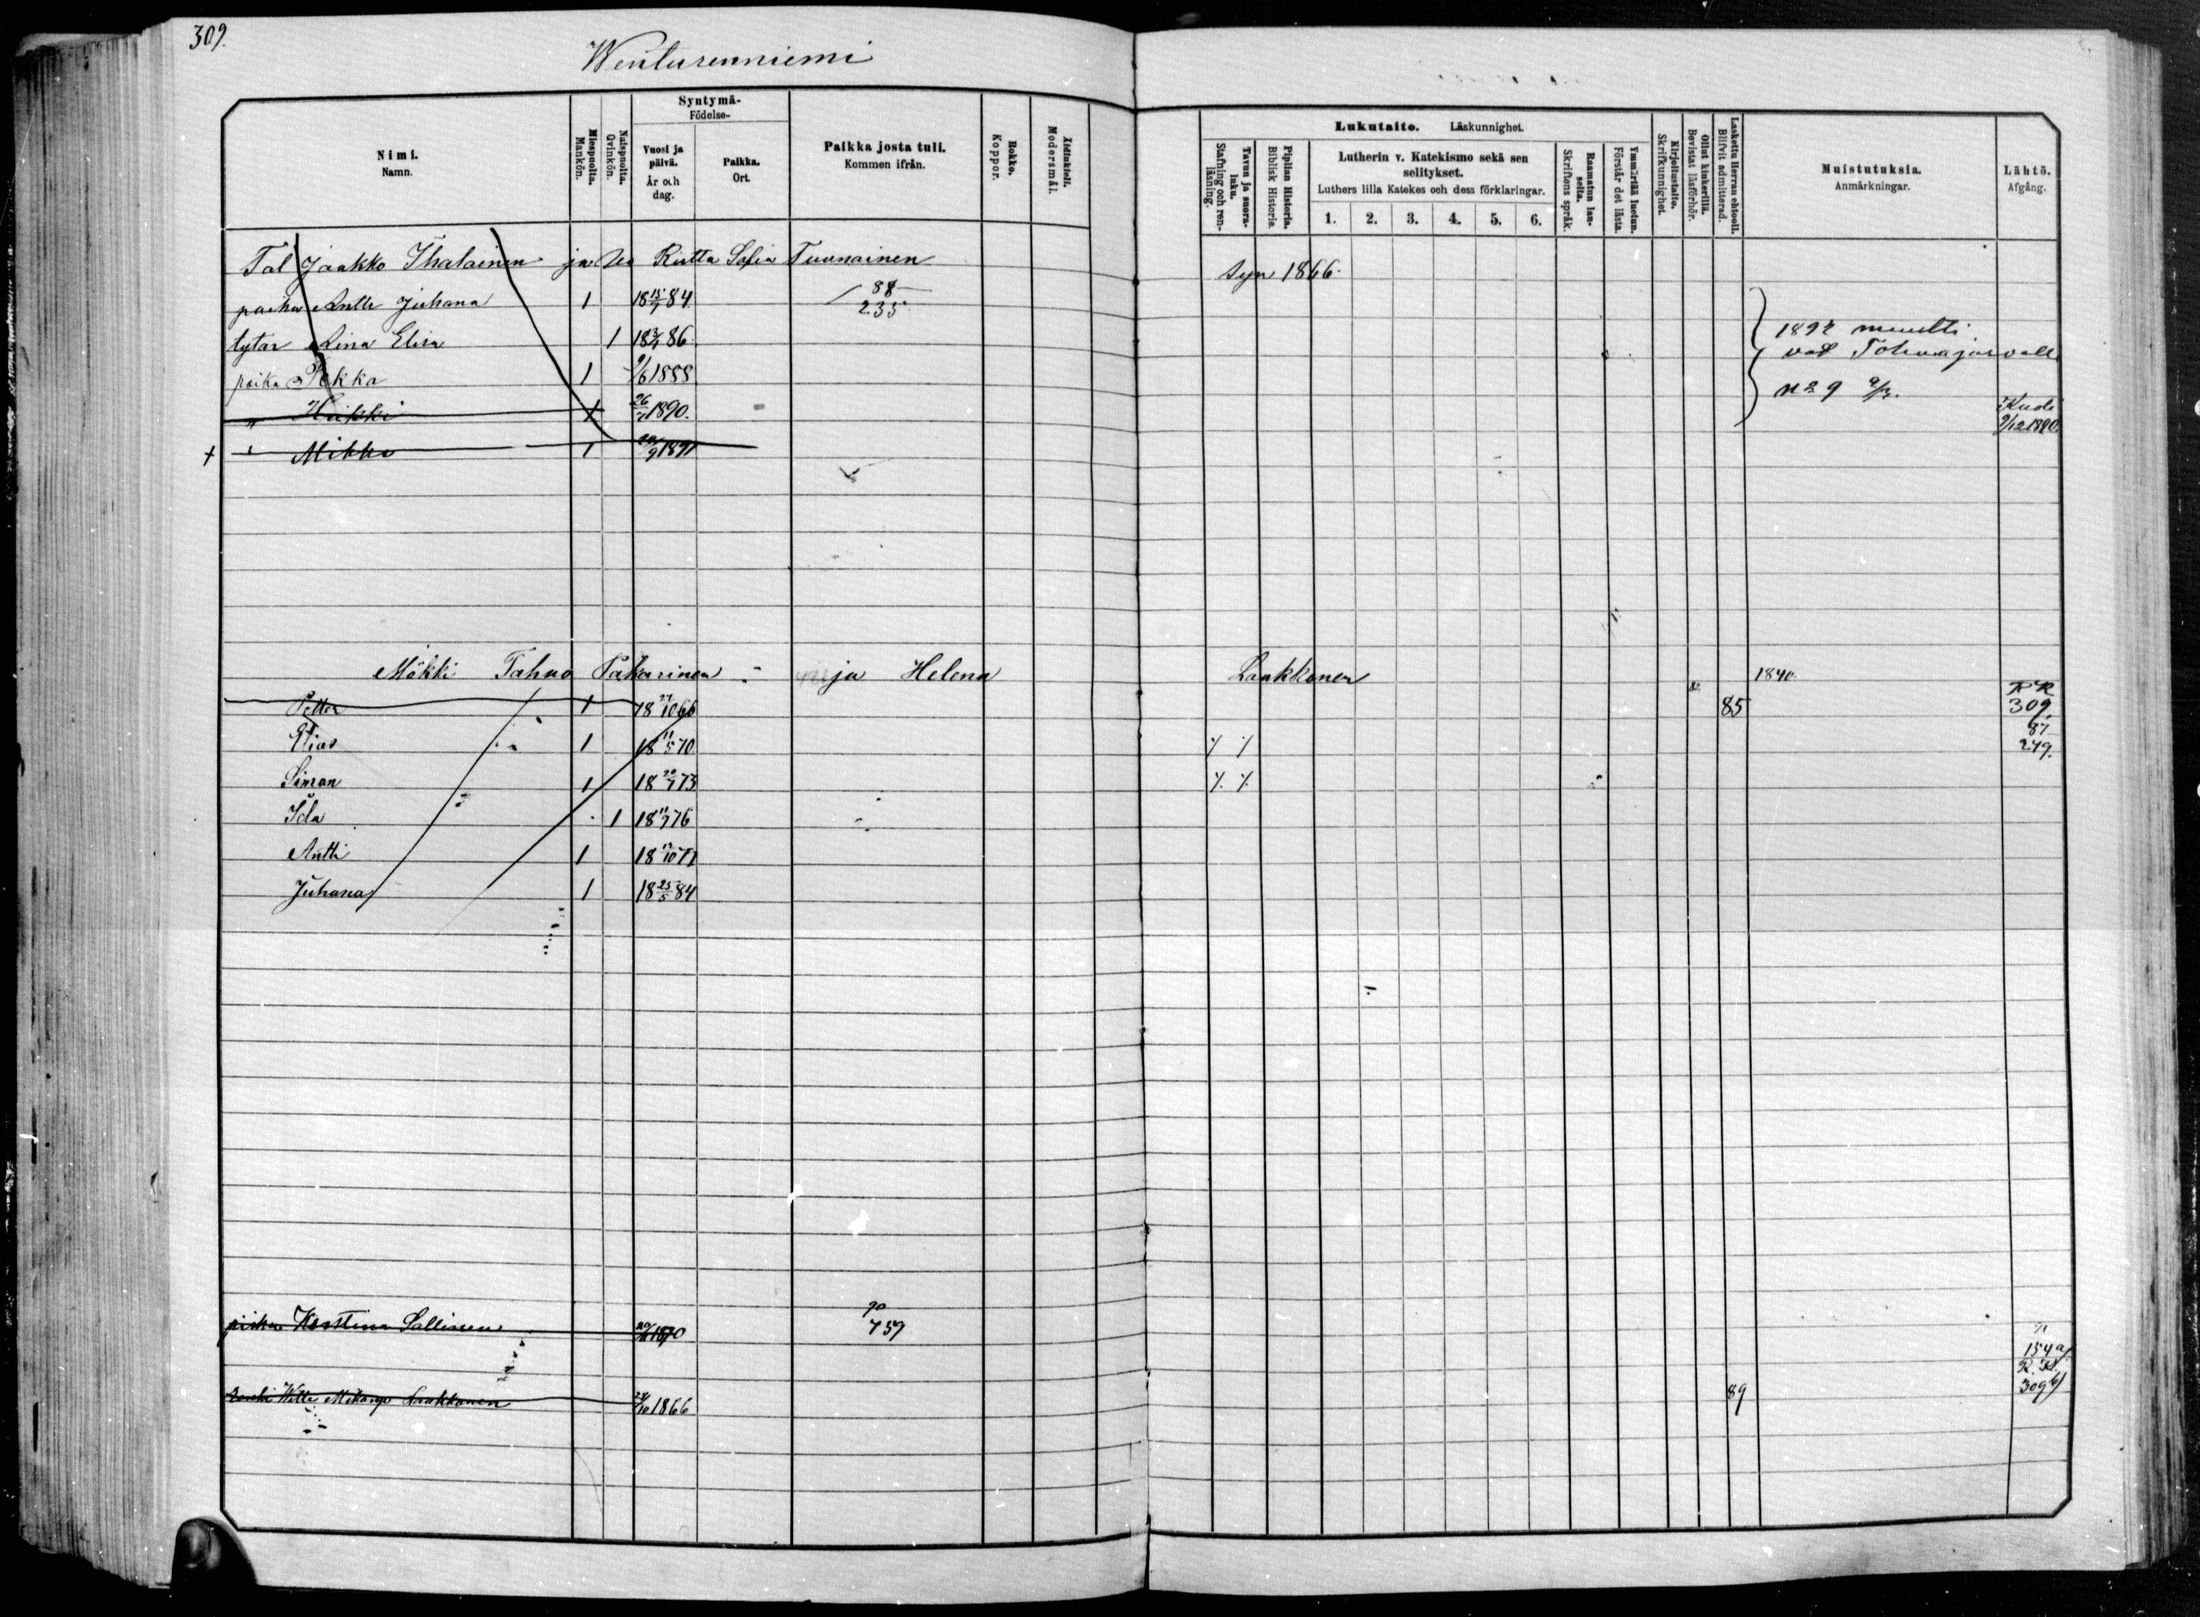 309.
Wenturenniemi
Nimi.
Namn.
Miespuolia.
Mankön.
Naispuolia.
Qvinkön.
Syntymä-
Födelse-
Vuosi ja päivä.
År och dag.
Paikka.
Ort.
Paikka josta tuli.
Kommen ifrån.
Rokko.
Koppor.
Äidinkieli.
Modersmål.
Lukutaito. Läskunnighet.
Tavuu ja suora-luku.
Stafning och ren-läsning.
Piplian Historia.
Biblisk Historie.
Lutherin v. Katekismo sekä sen selitykset.
Luthers lilla Katekes och dess förklaringar.
1. 2. 3. 4. 5. 6.
Raamatun lau-seita.
Skriftens språk.
Ymmärtää luetun.
Förstår det lästa.
Kirjoitustaito.
Skrifkunnighet.
Ollut kinkerillä.
Bevistat läsförhör.
Laskettu Herran ehtooll.
Blifvit admitterad.
Muistutuksia.
Anmärkningar.
Lähtö.
Afgång.
Tal Jaakko Ihalainen ja Vo Riitta Sofia Tuunainen syn 1866.
poika Antti Juhana 1 18 15/7 84 88 235
tytär Lina Elisa 1 18 3/1 86 1892 muutti
poika Pekka 1 9/6 1888 vad Tohmajärvelle
" Heikki 1 26/7 1890. N 29 Kuoli 9/12 1890
+ " Mikko 1 1891
Mökki Tahvo Pakarinen ja Helena Laakkonen 1840.
Petter 1 18 27/10 66 85 RK 309
Elias 1 18 11/5 70 87 249.
Simon 1 18 20/7 73
Ida 1 18 11/7 76
Antti 1 18 17/10 77
Juhana 1 18 25/5 84
piika Kristina Sallinen 1870 90 759 154 a)
Wille Mikonp Laakkonen 24/10 1866 89 R.K. 309 b)